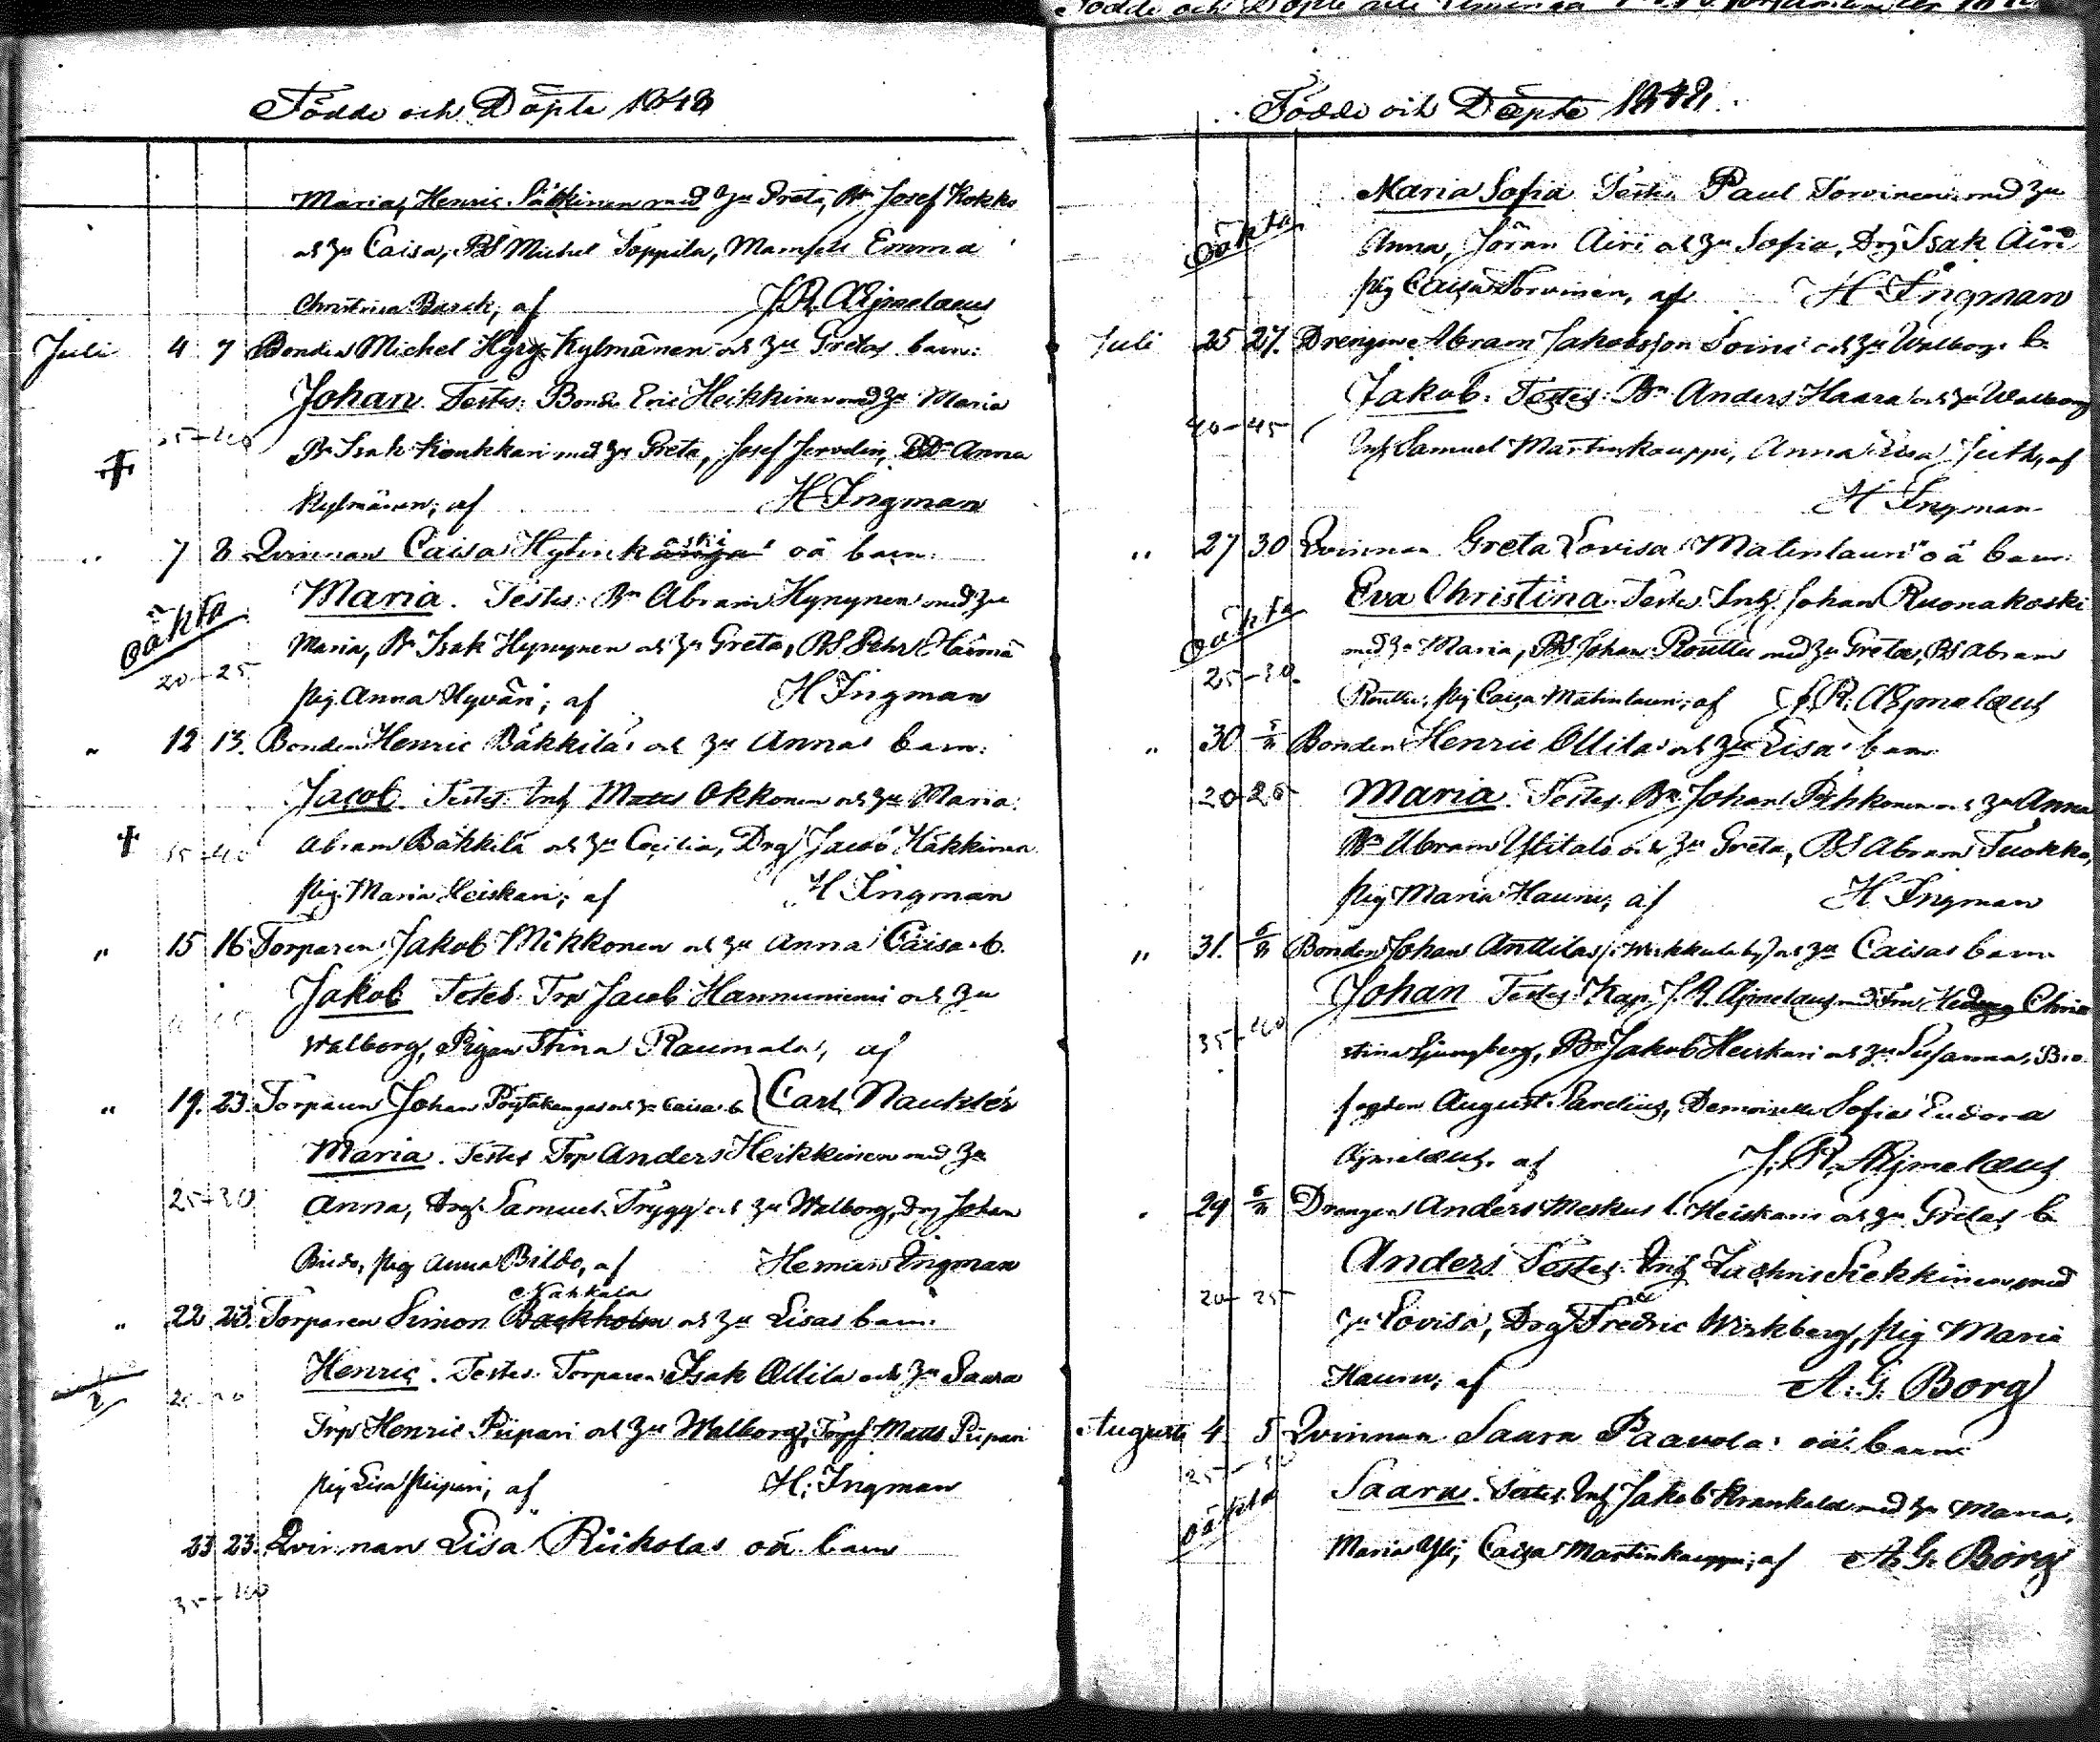 Födde och Döpte 1848
Maria, Henric Säkkinen med Hu Greta, Bn Josef Kokko
och Hu Caisa, BS Michel Toppila, Mamsell Emma
Christina Barck, af J.R. Aejmelaeus
Juli 4 7 Bonden Michel Kylmänen och Hu Gretas barn:
Johan. Testes: Bonde Eric Heikkinen med Hu Maria
35-40 Bn Isak Koukkari med Hu Greta, Josef, BD Anna
Kylmänen, af H Ingman
" 7 8 Qvinnan Caisa Hytinkoski oä barn:
Maria. Testes: Bn Abram Hynynen med Hu
oäkta Maria, Bn Isak Hynynen och Hu Greta, BS Pehr Härmä
20-25 pig. Anna Hyvän; af H Ingman
" 12 13. Bonden Henric Bäkkilä och Hu Annas barn:
Jacob. Testes: Inh Matts Okkonen och Hu Maria
35-40 Abram Bäkkilä och Hu Cecilia, Drg Jacob Häkkinen
pig. Maria Heiskari; af H Ingman
" 15 16 Torparen Jakob Mikkonen och Hu Anna Caisas b.
Jakob Testes: Trp Jacob Hannuniemi och Hu
Walborg, Pigan Stina Raumala, af
" 19. 23. Torparen Johan och Hu Caisas b Carl Nauklér
Maria. Testes Trp Anders Heikkinen med Hu
25-30 Anna, Drg. Samuel Trygg och Hu Walborg, Drg Johan
Bildo, pig Anna Bildo, af Herman Ingman
Nahkala
" 22 23. Torparen Simon Backholm och Hu Lisas barn:
Henric. Testes: Torparen Isak Ollila och Hu Saara
Trp Henric Piipari och Hu Walborg, TorpS Matts Piipari
pig Lisa Piipari; af H. Ingman
23 23. Qvinnan Lisa Riikolas oä barn
35-40
Födde och Döpte 1848.
Maria Sofia Testes Paul Torvinen med Hu
oäkta Anna, Jöran Airi och Hu Sofia, Drg Isak Airi
pig Caisa Torvinen, af H. Ingman
Juli 25 27. Drengen Abram Jakobsson Soini och Hu Walborgs b.
Jakob. Testes: Bn Anders Haara och Hu Walborg
40-45 Inh Samuel Martinkauppi, Anna Lisa, af
H Ingman
" 27 30 Qvinnan Greta Lovisa Matinlauri oä barn:
Eva Christina. Testes: Inh. Johan Ruonakoski
oäkta med Hu Maria, BS Johan Routtu med Hu Greta, BS Abram
25-30. Routtu, pig Caisa Matinlauri; af J.R. Aejmelaeus
" 30 5/8 Bonden Henric Ollila och Hu Lisas barn
20-25 Maria. Testes. Bn Johan Pehkonen och Hu Anna
Bn Abram Ylitalo och Hu Greta, BS Abram Tuokko,
pig Maria Hauru; af H. Ingman
" 31. 5/8 Bonden Johan Anttilas och Hu Caisas barn
Johan Testes: Kap. J.R. Ajmelaeus med Fru Hedvig Chri
35-40 stina Ljungberg, Bn Jakob Heiskari och Hu Susanna, Bro
fogden August, Demoiselle Sofia Eudora
Ajmelaeus, af J.R. Aejmelaeus
" 29 5/8 Drengen Anders Meskus l. Heiskari och Hu Gretas b
Anders Testes. Inh Siekkinen med
20-25 Hu Lovisa, Drg Fredric Wirkberg, pig Maria
Hauru, af A. G. Borg
Augusti 4 5 Qvinnan Saara Paavola oä barn
25-30 Saara. Testes. Inh Jakob Krankala med Hu Maria,
oäkta Maria Yli, Caisa Martinkauppi; af A. G. Borg